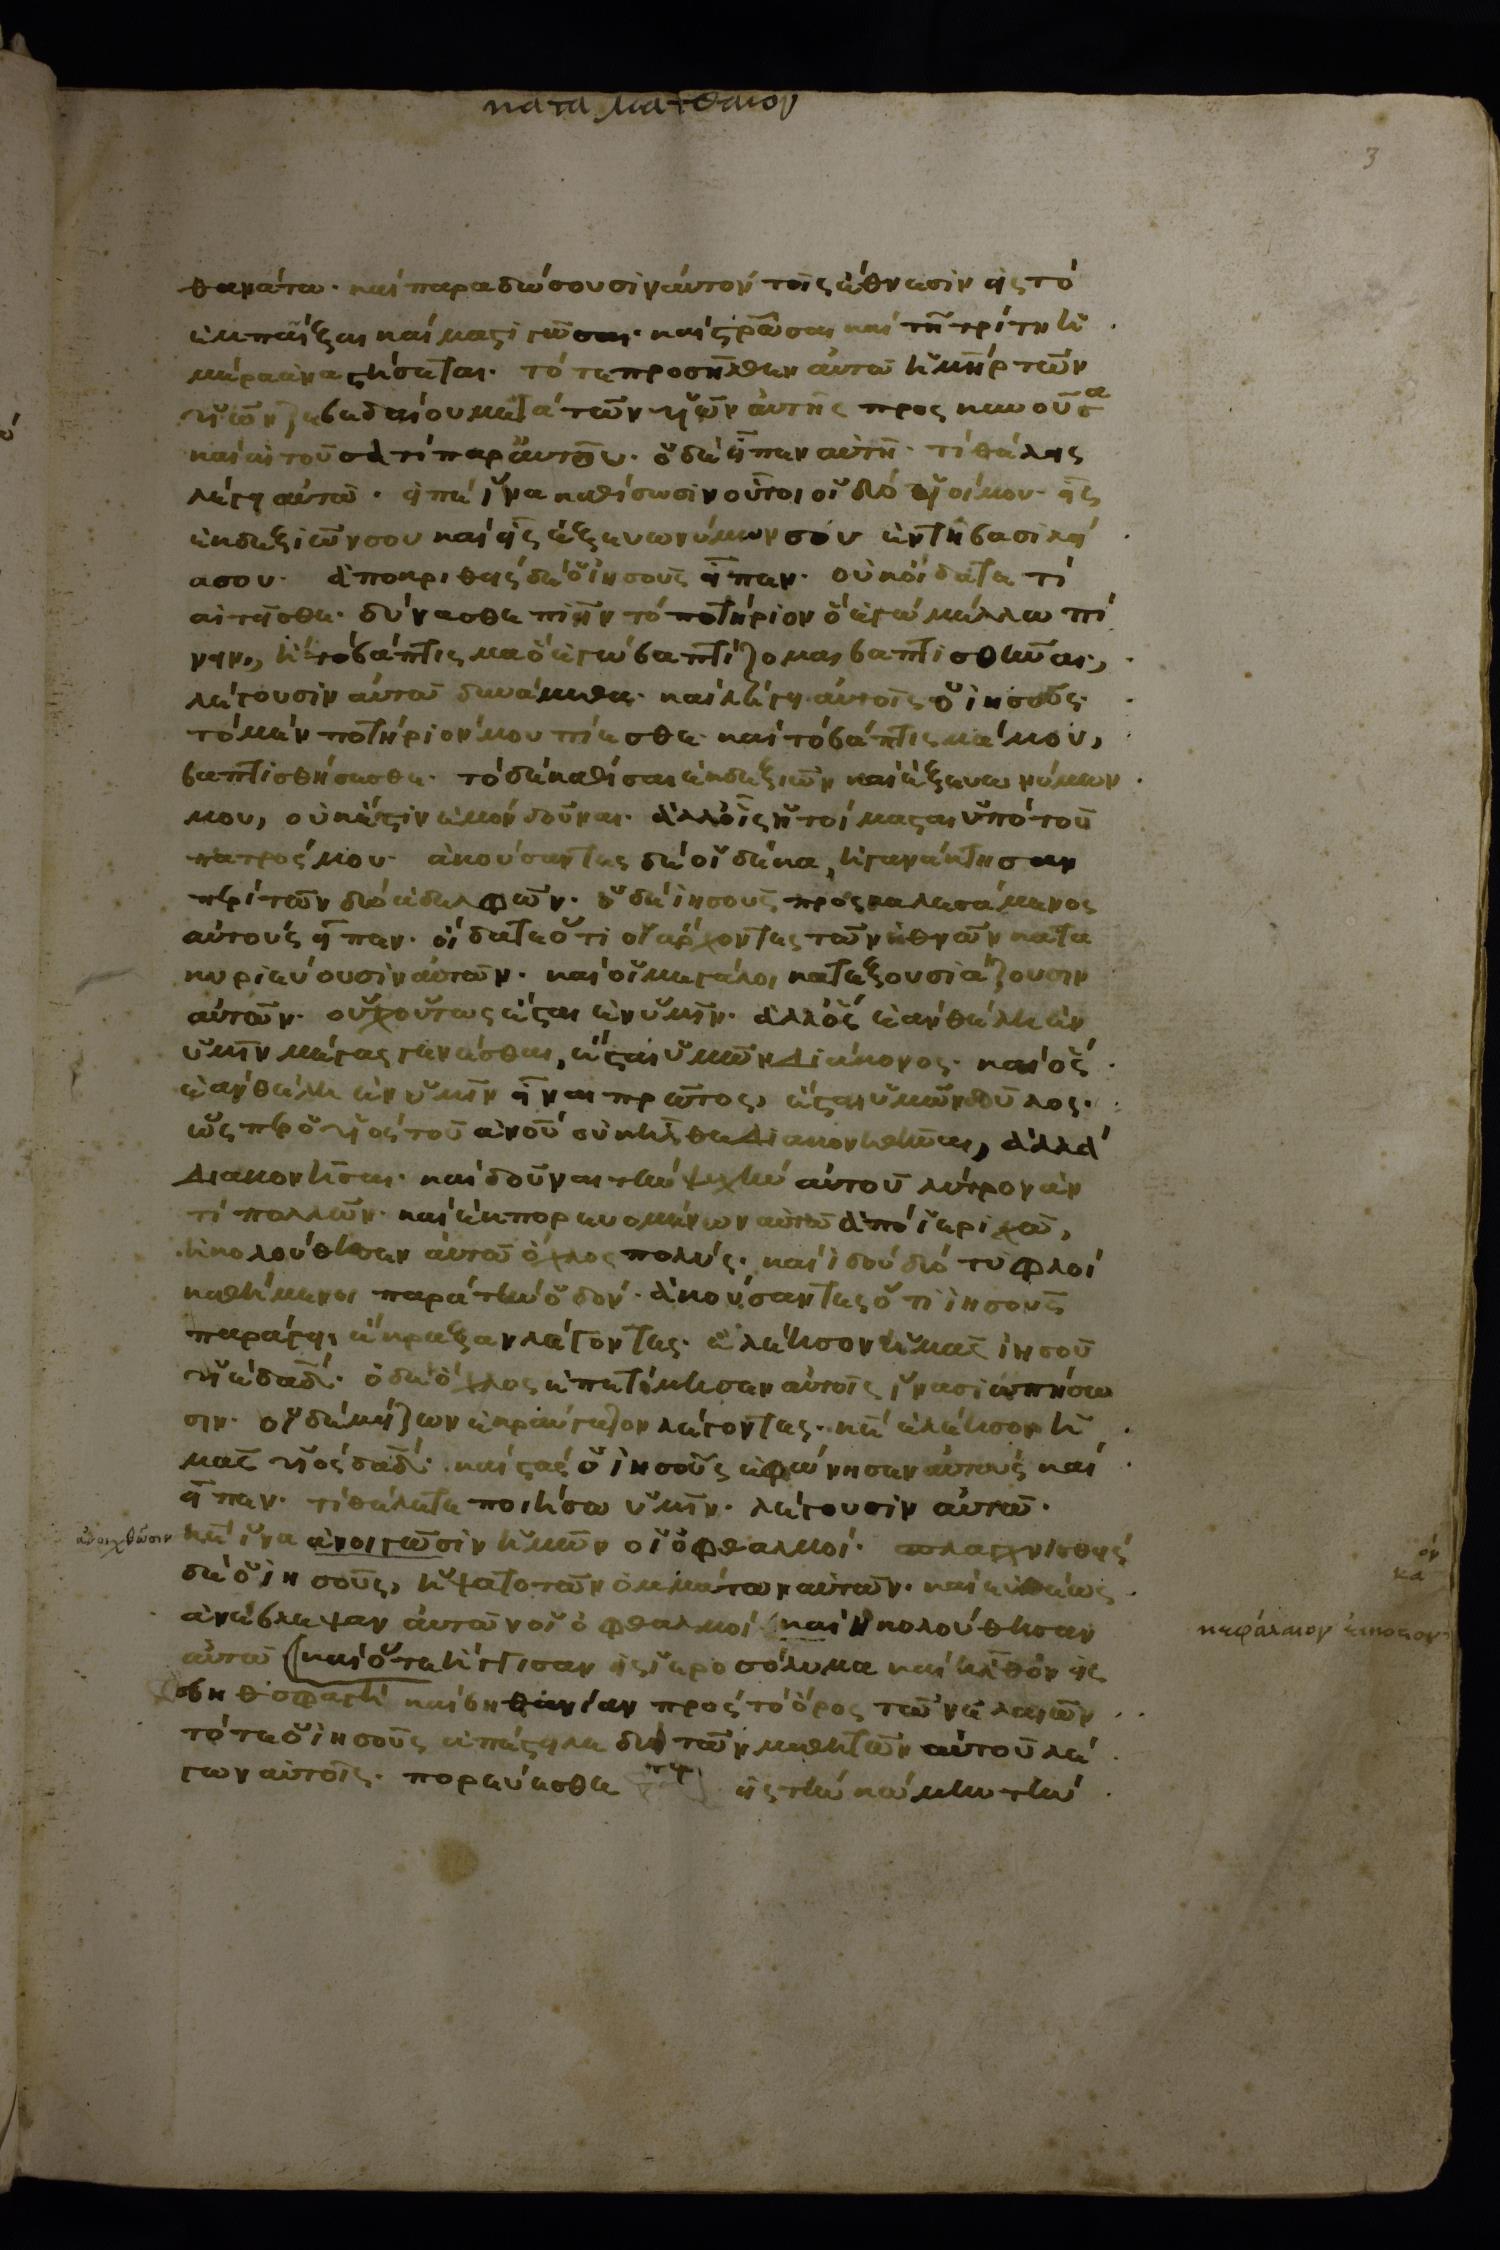 κατα ματθαιον
3
θανάτω· καὶ παραδώσουσιν αὐτὸν τοῖς ἔθνεσιν εἰς τὸ
ἐμπαῖξαι καὶ μαστιγῶσαι· καὶ στρῶσαι καὶ τῆ τρίτη ἡ
μέρα ἀναστήσεται. τότε προσῆλθεν αὐτῶ ἡ μηρ τῶν
υἱῶν ζεβεδαίου μετὰ τῶν υἱῶν αὐτῆς προσκυνοῦσα
καὶ αἰτοῦσά τι παρ' αὐτοῦ. ὁ δὲ εἶπεν αὐτῆ· τί θέλεις
λέγει αὐτῶ. εἰπὲ ἵνα καθίσωσιν οὗτοι οἱ δύο υἱοί μου· εἷς
ἐκ δεξιῶν σου καὶ εἷς ἐξ εὐωνύμων σου ἐν τῆ βασιλεί
α σου. ἀποκριθεὶς δὲ ὁ ἰησοῦς εἶπεν· οὐκ οἴδατε τί
αἰτεῖσθε· δύνασθε πιεῖν τὸ ποτήριον ὃ ἐγὼ μέλλω πί
νειν, ἢ τὸ βάπτισμα ὃ ἐγὼ βαπτίζομαι βαπτισθῆναι,
λέγουσιν αὐτῶ δυνάμεθα· καὶ λέγει αὐτοῖς ὁ ἰησοῦς·
τὸ μὲν ποτήριόν μου πίεσθε· καὶ τὸ βάπτισμά μου,
βαπτισθήσεσθε· τὸ δὲ καθίσαι ἐκ δεξιῶν καὶ ἐξ εὐωνύμων
μου, οὐκ ἔστιν ἐμὸν δοῦναι· ἀλλ' οἷς ἡτοίμασται ὑπὸ τοῦ
πατρός μου· ἀκούσαντες δὲ οἱ δέκα, ἠγανάκτησαν
περὶ τῶν δύο ἀδελφῶν. ὁ δὲ ἰησοῦς προσκαλεσάμενος
αὐτοὺς εἶπεν· οἴδατε ὅτι οἱ ἄρχοντες τῶν ἐθνῶν κατα
κυριεύουσιν αὐτῶν· καὶ οἱ μεγάλοι κατεξουσιάζουσιν
αὐτῶν· οὐχ οὕτως ἔσται ἐν ὑμῖν· ἀλλ' ὃς ἐὰν θέλη ἐν
ὑμῖν μέγας γενέσθαι, ἔσται ὑμῶν διάκονος· καὶ ὃς
ἐὰν θέλη ἐν ὑμῖν εἶναι πρῶτος, ἔσται ὑμῶν δοῦλος·
ὥσπερ ὁ υἱὸς τοῦ ανου οὐκ ἦλθε διακονηθῆναι, ἀλλὰ
διακονῆσαι· καὶ δοῦναι τὴν ψυχὴν αὐτοῦ λύτρον ἀν
τὶ πολλῶν· καὶ ἐκπορευομένων αὐτῶν ἀπὸ ἱεριχῶ,
ἠκολούθησεν αὐτῶ ὄχλος πολύς· καὶ ἰδοὺ δύο τυφλοὶ
καθήμενοι παρὰ τὴν ὁδόν· ἀκούσαντες ὅτι ἰησοῦς
παράγει, ἔκραξαν λέγοντες· ἐλέησον ἡμᾶς ἰησοῦ
υἱὲ δαδ· ὁ δὲ ὄχλος ἐπετίμησεν αὐτοῖς ἵνα σιωπήσω
σιν· οἱ δὲ μείζων ἐκραύγαζον λέγοντες· κε ἐλέησον ἡ
μᾶς υἱὸς δαδ· καὶ στὰς ὁ ἰησοῦς ἐφώνησεν αὐτοὺς καὶ
εἶπεν· τί θέλετε ποιήσω ὑμῖν· λέγουσιν αὐτῶ·
ἀνοιχθῶσιν κε ἵνα ἀνοιγῶσιν ἡμῶν οἱ ὀφθαλμοί· σπλαγχνισθεὶς
δὲ ὁ ἰησοῦς, ἥψατο τῶν ὀμμάτων αὐτῶν· καὶ εὐθέως
ἀνέβλεψαν αὐτῶν οἱ ὀφθαλμοί καὶ ἠκολούθησαν
κεφάλαιον εἰκοστὸν
αὐτῶ (καὶ ὅτε ἤγγισαν εἰς ἱεροσόλυμα καὶ ἦλθον εἰς
βηθσφαγὴ καὶ βηθανίαν πρὸς τὸ ὄρος τῶν ἐλαιῶν
τότε ὁ ἰησοῦς ἀπέστειλε δύο τῶν μαθητῶν αὐτοῦ λέ
γων αὐτοῖς· πορεύεσθε εἰς τὴν κώμην τὴν